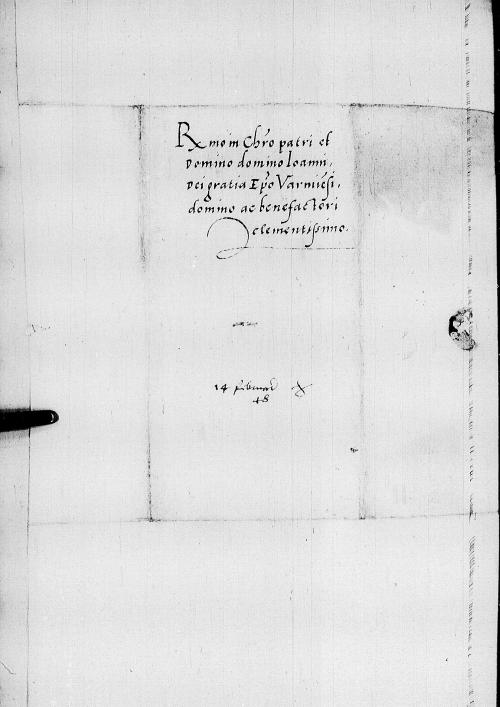 Rmo in Chro patri et
Domino domino Ioanni,
Dei gratia Epo Varmiesi,
domino ac benefactori
clementissimo.
14 februarii
48